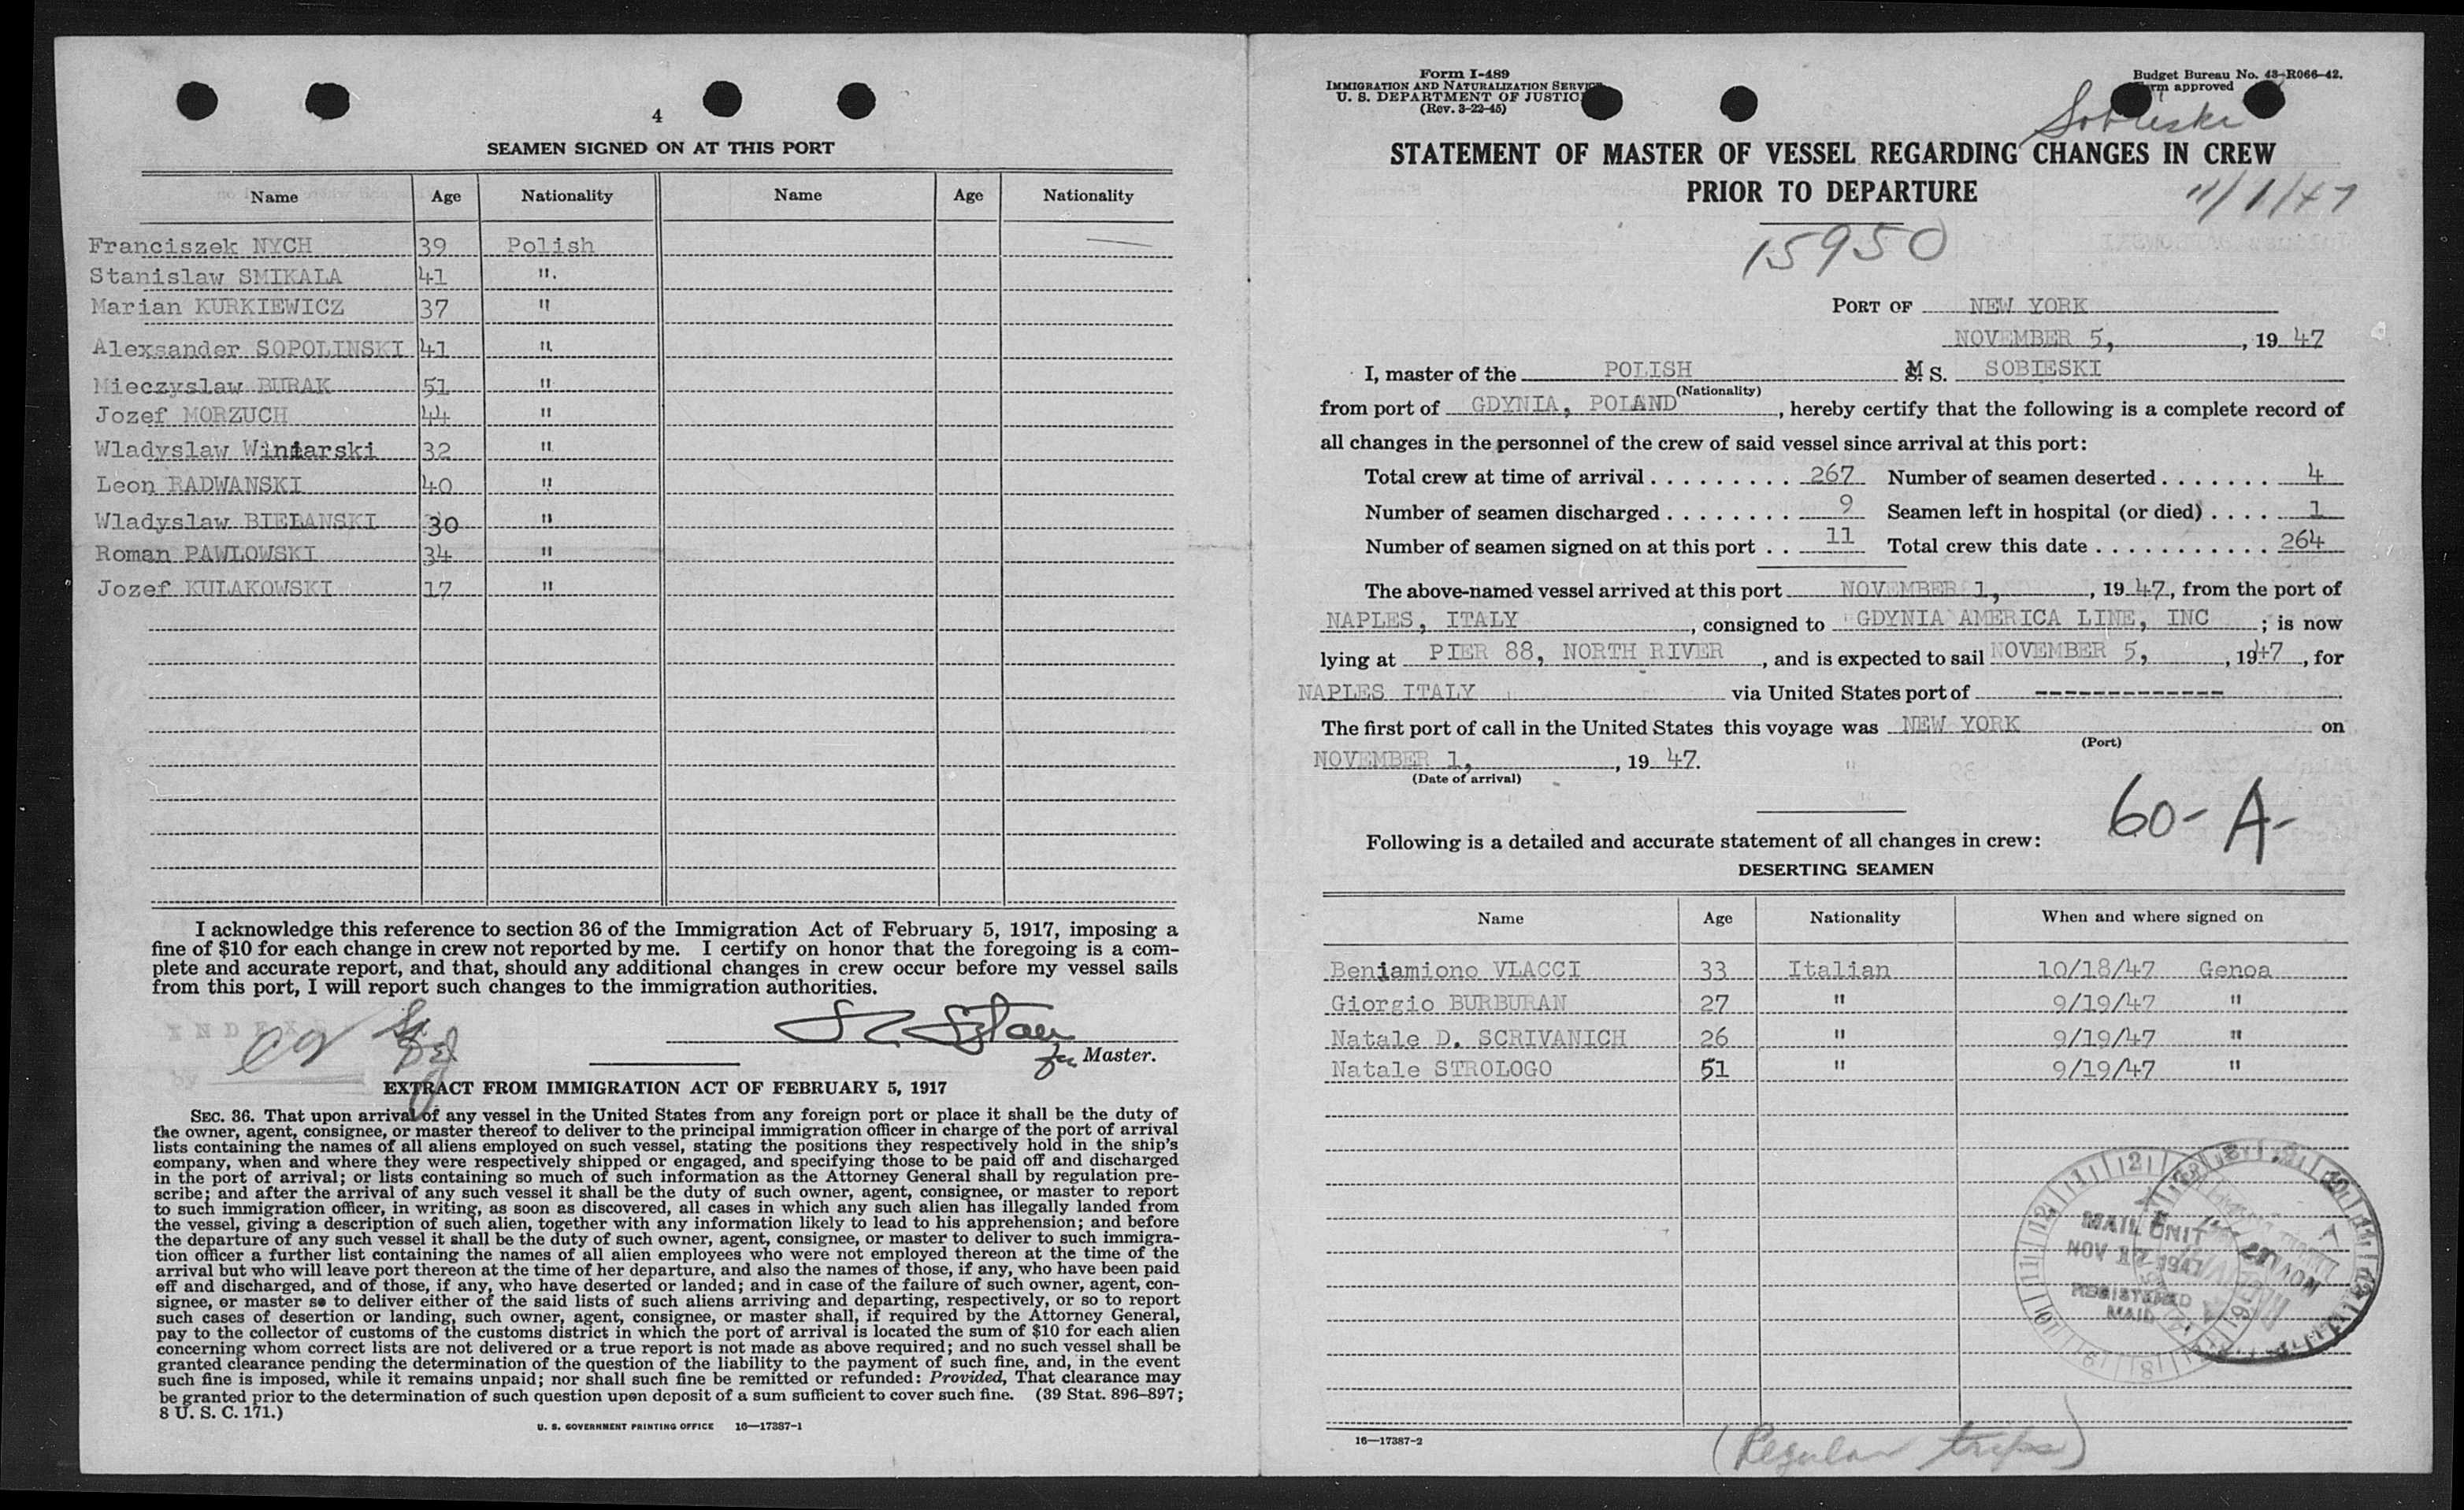 4
SEAMEN SIGNED ON AT THIS PORT
Name Age Nationality Name Age Nationality
Franciszek NYCH 39 Polish
Stanislaw SMIKALA 41 ".
Marian KURKIEWICZ 37 "
Alexsander SOPOLINSKI 41 "
Mieczyslaw BURAK 51 "
Jozef MORZUCH 44 "
Wladyslaw Winiarski 32 "
Leon RADWANSKI 40 "
Wladyslaw BIELANSKI 30 "
Roman PAWLOWSKI 34 "
Jozef KULAKOWSKI 17 "
I acknowledge this reference to section 36 of the Immigration Act of February 5, 1917, imposing a
fine of $10 for each change in crew not reported by me. I certify on honor that the foregoing is a com-
plete and accurate report, and that, should any additional changes in crew occur before my vessel sails
from this port, I will report such changes to the immigration authorities.
for Master.
EXTRACT FROM IMMIGRATION ACT OF FEBRUARY 5, 1917
SEC. 36. That upon arrival of any vessel in the United States from any foreign port or place it shall be the duty of
the owner, agent, consignee, or master thereof to deliver to the principal immigration officer in charge of the port of arrival
lists containing the names of all aliens employed on such vessel, stating the positions they respectively hold in the ship's
company, when and where they were respectively shipped or engaged, and specifying those to be paid off and discharged
in the port of arrival; or lists containing so much of such information as the Attorney General shall by regulation pre-
scribe; and after the arrival of any such vessel it shall be the duty of such owner, agent, consignee, or master to report
to such immigration officer, in writing, as soon as discovered, all cases in which any such alien has illegally landed from
the vessel, giving a description of such alien, together with any information likely to lead to his apprehension; and before
the departure of any such vessel it shall be the duty of such owner, agent, consignee, or master to deliver to such immigra-
tion officer a further list containing the names of all alien employees who were not employed thereon at the time of the
arrival but who will leave port thereon at the time of her departure, and also the names of those, if any, who have been paid
off and discharged, and of those, if any, who have deserted or landed; and in case of the failure of such owner, agent, con-
signee, or master so to deliver either of the said lists of such aliens arriving and departing, respectively, or so to report
such cases of desertion or landing, such owner, agent, consignee, or master shall, if required by the Attorney General,
pay to the collector of customs of the customs district in which the port of arrival is located the sum of $10 for each alien
concerning whom correct lists are not delivered or a true report is not made as above required; and no such vessel shall be
granted clearance pending the determination of the question of the liability to the payment of such fine, and, in the event
such fine is imposed, while it remains unpaid; nor shall such fine be remitted or refunded: Provided, That clearance may
be granted prior to the determination of such question upon deposit of a sum sufficient to cover such fine. (39 Stat. 896-897;
8 U. S. C. 171.)
U. S. GOVERNMENT PRINTING OFFICE 16—17387-1
Form I-489
IMMIGRATION AND NATURALIZATION SERVICE
U. S. DEPARTMENT OF JUSTICE
(Rev. 3-22-45)
Budget Bureau No. 43-R066-42.
approved
Sobieski
STATEMENT OF MASTER OF VESSEL REGARDING CHANGES IN CREW
PRIOR TO DEPARTURE
11/1/47
15950
PORT OF NEW YORK
NOVEMBER 5, , 19 47
I, master of the POLISH M S. SOBIESKI
(Nationality)
from port of GDYNIA, POLAND , hereby certify that the following is a complete record of
all changes in the personnel of the crew of said vessel since arrival at this port:
Total crew at time of arrival . . . . . . . . . 267 Number of seamen deserted . . . . . . . 4
Number of seamen discharged . . . . . . . . 9 Seamen left in hospital (or died) . . . . 1
Number of seamen signed on at this port . . 11 Total crew this date . . . . . . . . . . . 264
The above-named vessel arrived at this port NOVEMBER 1, , 19 47, from the port of
NAPLES, ITALY , consigned to GDYNIA AMERICA LINE, INC ; is now
lying at PIER 88, NORTH RIVER , and is expected to sail NOVEMBER 5, , 1947 , for
NAPLES ITALY via United States port of -------------
The first port of call in the United States this voyage was NEW YORK on
(Port)
NOVEMBER 1, , 19 47.
(Date of arrival)
60-A-
Following is a detailed and accurate statement of all changes in crew:
DESERTING SEAMEN
Name Age Nationality When and where signed on
Beniamiono VLACCI 33 Italian 10/18/47 Genoa
Giorgio BURBURAN 27 " 9/19/47 "
Natale D. SCRIVANICH 26 " 9/19/47 "
Natale STROLOGO 51 " 9/19/47 "
MAIL UNIT
NOV 17 1947
REGISTERED
MAIL
16—17387-2
(Regular trips)